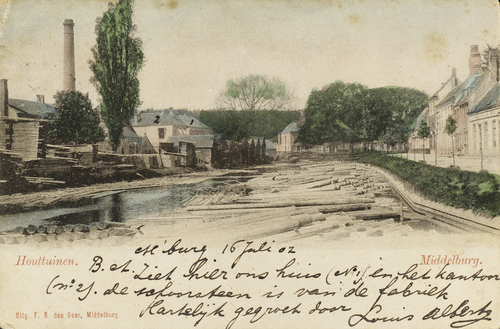 2 1
Houttuinen.
Middelburg.
M'burg 16 Juli 02
B. et Ziet hier ons huis (No 1) en het kantoor
(no 2). de schoorsteen is van de fabriek
Hartelijk gegroet door Louis Alberts
Uitg. F. B. den Boer, Middelburg